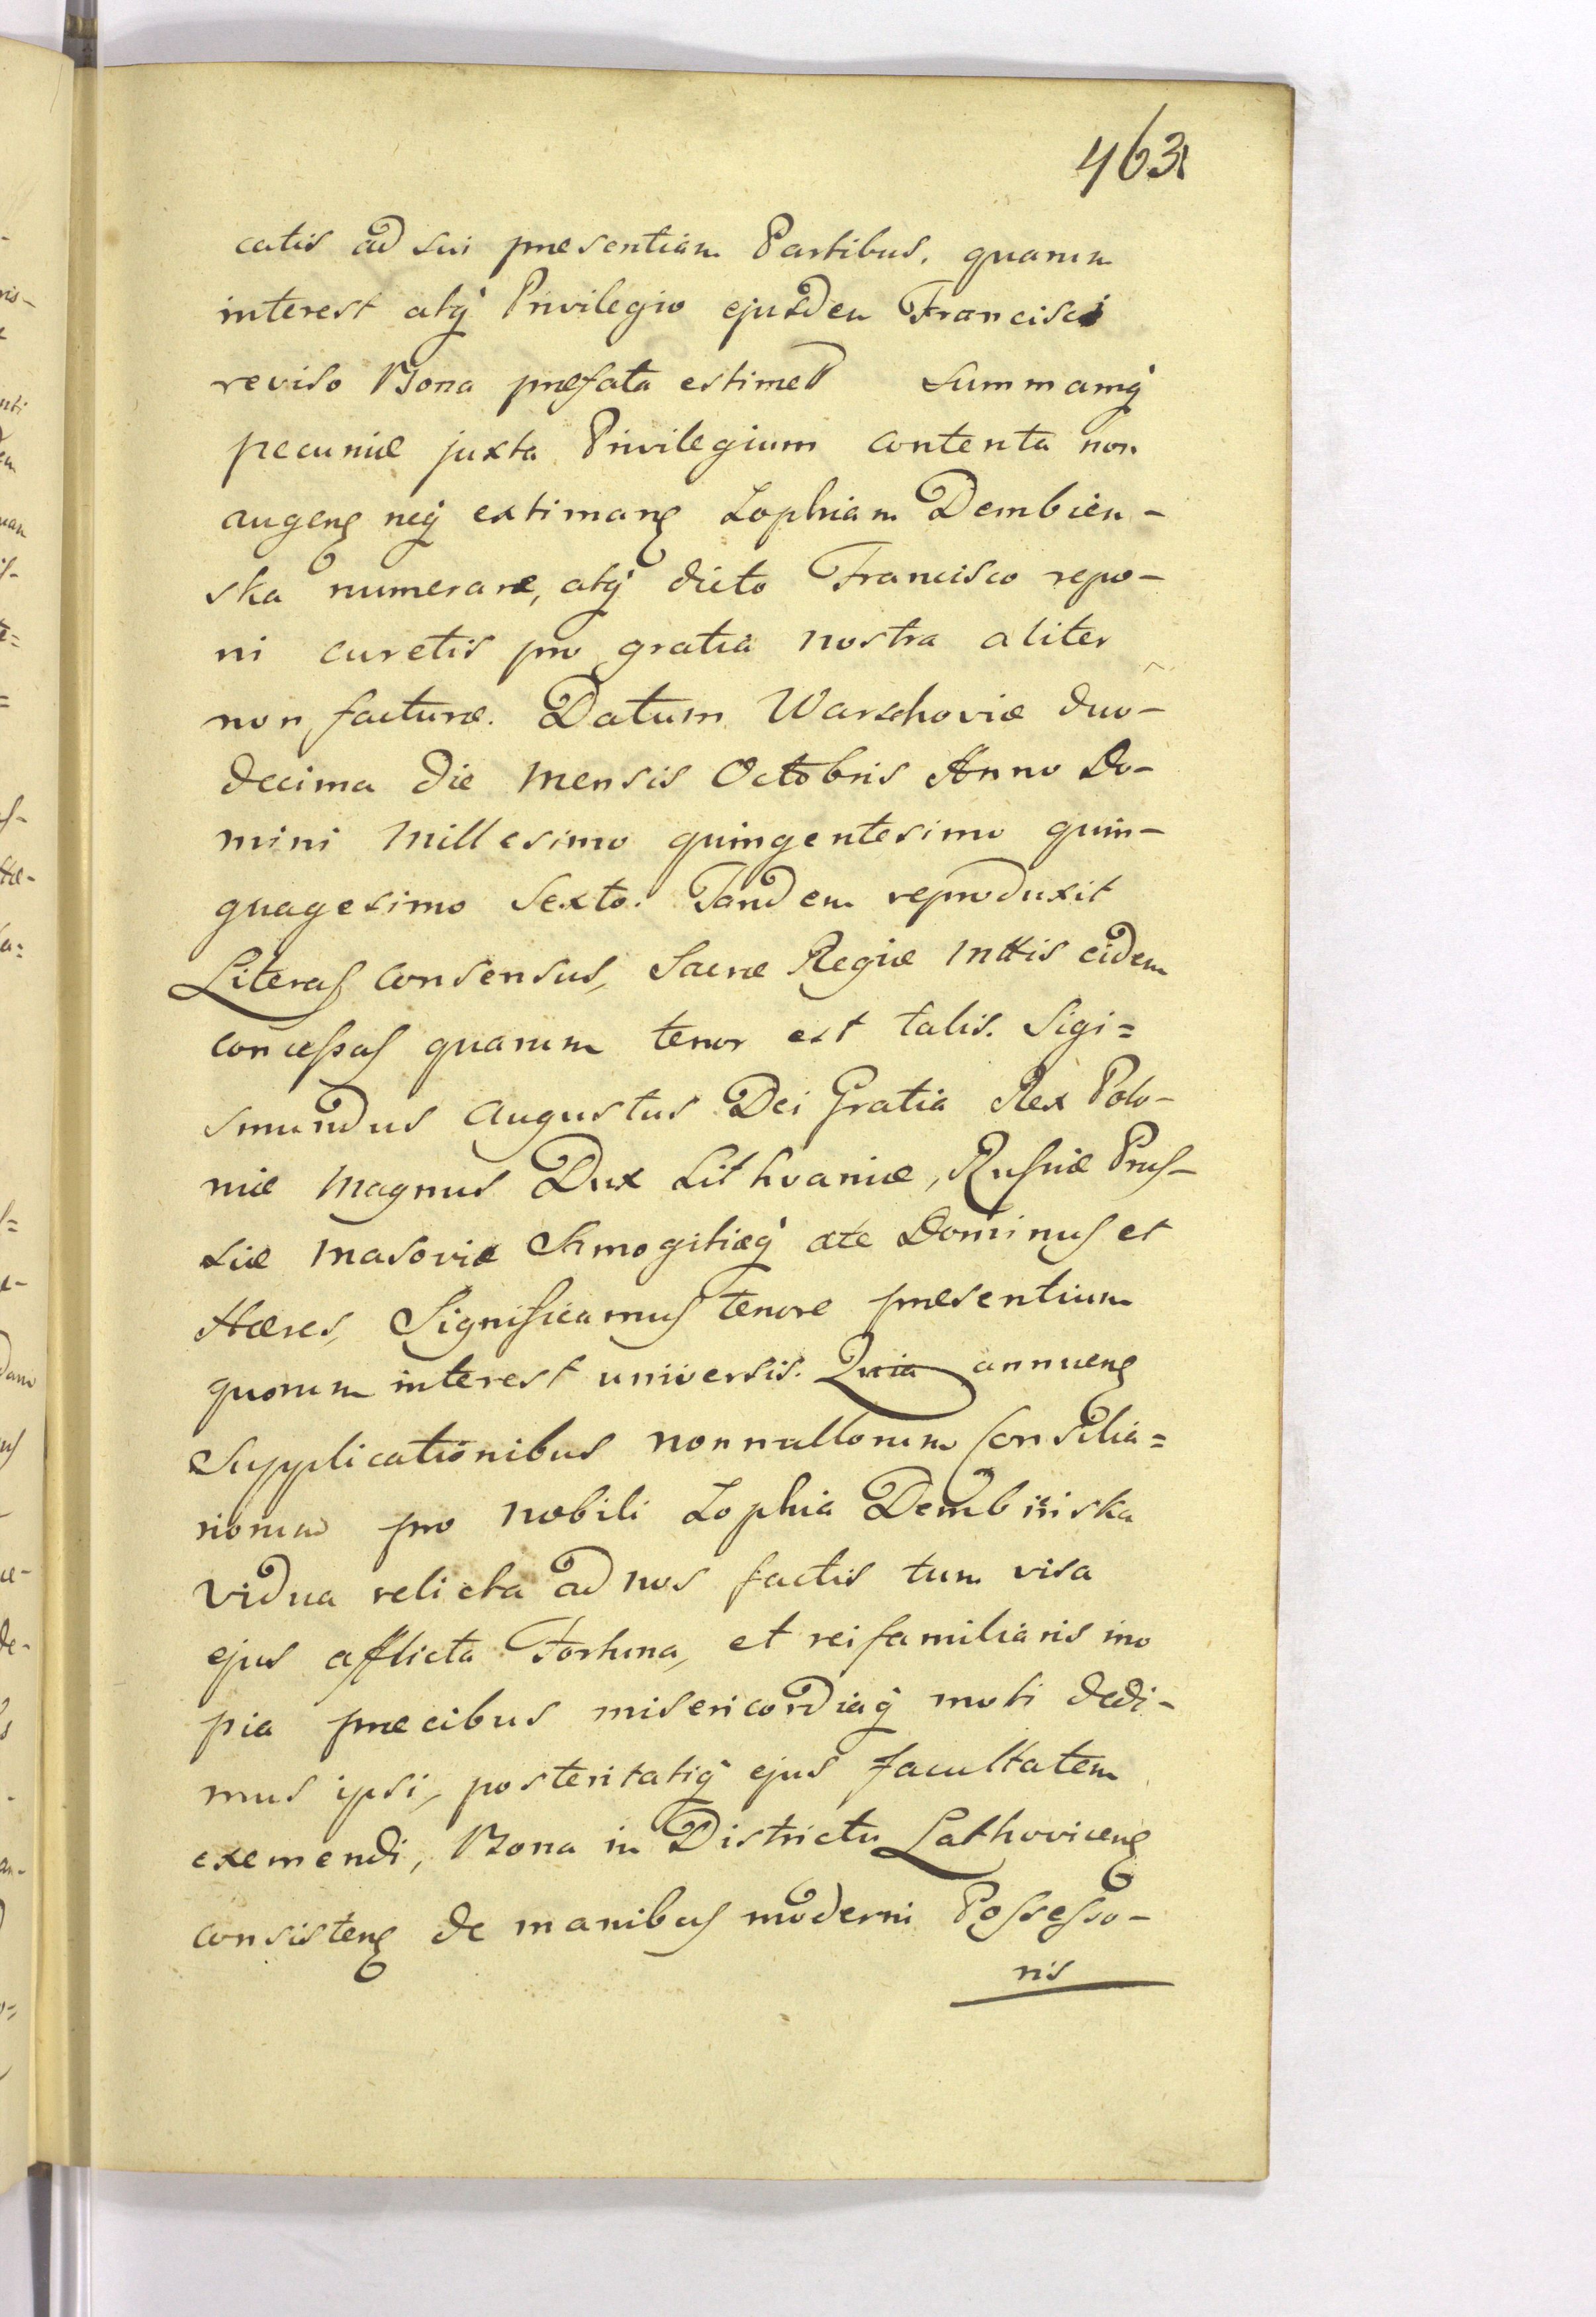 463
catis ad sui præsentiam Partibus, quarum
interest atq̃ Privilegio ejusdem Francisci
reviso Bona præfata estimet summamq̃
pecuniæ juxta Privilegium contenta non
augeng neq̃ extimang Zophiam Dembien-
ska numerare, atq̃ dicto Francisco repo-
ni curetis pro gratia nostra aliter
non facturæ. Datum Warschoviæ duo-
decima die mensis Octobris Anno Do-
mini Millesimo quingentesimo quin-
quagesimo Sexto. Tandem reproduxit
Literas consensus, Sacræ Regiæ Mttis eidem
concessas quarum tenor est talis. Sigi=
smundus Augustus Dei Gratia Rex Polo-
niæ Magnus Dux Lithvaniæ, Russiæ Prus-
siæ Masoviæ Smogitiæq̃ etc Dominus et
Hæres, Significamus tenore præsentium
quorum interest universis. Quia annueng
Supplicationibus nonnullorum Consilia=
riorum pro nobili Zophia Dembinska
vidua relicta ad nos factis tum visa
ejus afflicta Fortuna, et rei familiaris ino
pia præcibus misericordiaq̃ moti dedi-
mus ipsi, posteritatiq̃ ejus facultatem
exemendi, Bona in Districtu Lathoviceng
consisteng de manibus moderni Possesso-
ris